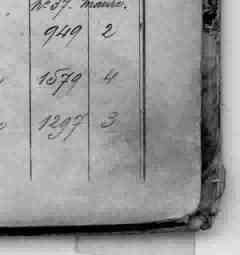 No 37. mause.
949 2
1579 4
1297 3